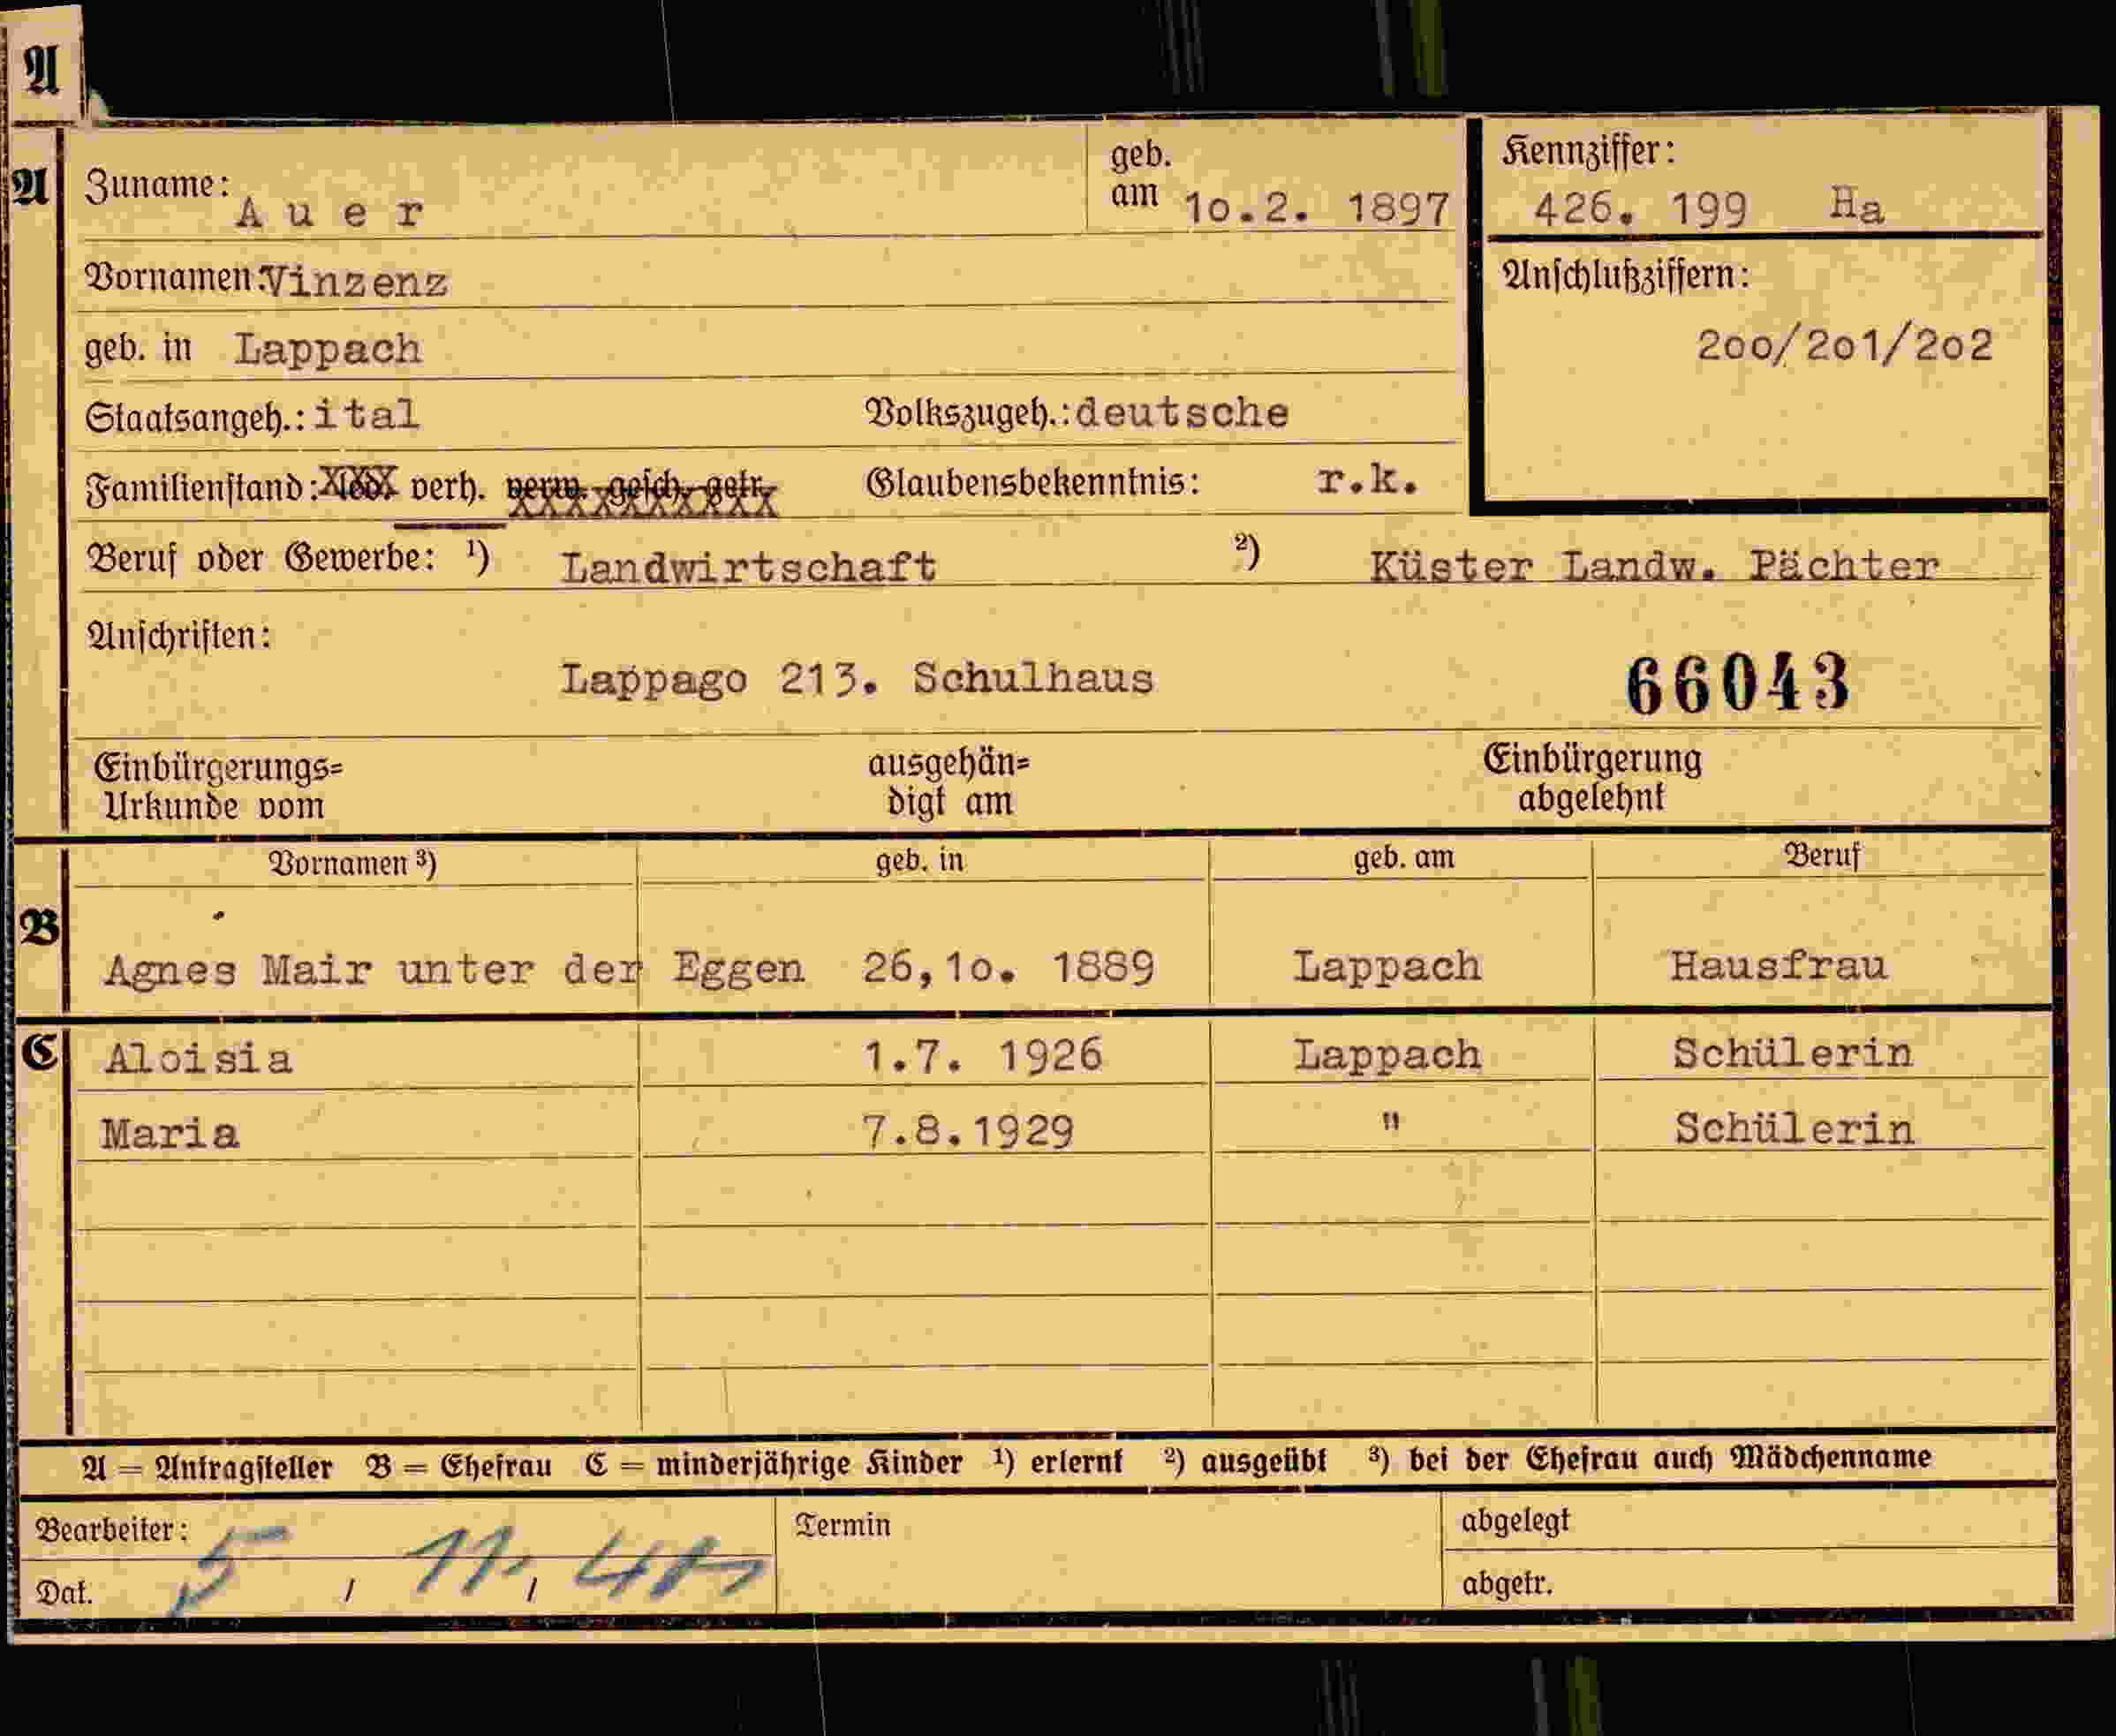 A
A
Zuname: Auer geb. am 10.2. 1897
Kennziffer:
426. 199 Ha
Vornamen: Vinzenz
Anschlußziffern:
200/201/202
geb. in Lappach
Staatsangeh.: ital Volkszugeh.: deutsche
Familienstand: led. verh. verw. gesch. getr. Glaubensbekenntnis: r.k.
Beruf oder Gewerbe: ¹) Landwirtschaft ²) Küster Landw. Pächter
Anschriften:
Lappago 213. Schulhaus 66043
Einbürgerungs= ausgehän= Einbürgerung
Urkunde vom digt am abgelehnt
Vornamen ³) geb. in geb. am Beruf
B
Agnes Mair unter der Eggen 26,10. 1889 Lappach Hausfrau
C Aloisia 1.7. 1926 Lappach Schülerin
Maria 7.8.1929 " Schülerin
A = Antragsteller B = Ehefrau C = minderjährige Kinder ¹) erlernt ²) ausgeübt ³) bei der Ehefrau auch Mädchenname
Bearbeiter: Termin abgelegt
Dat. 5 / 11, / abgetr.